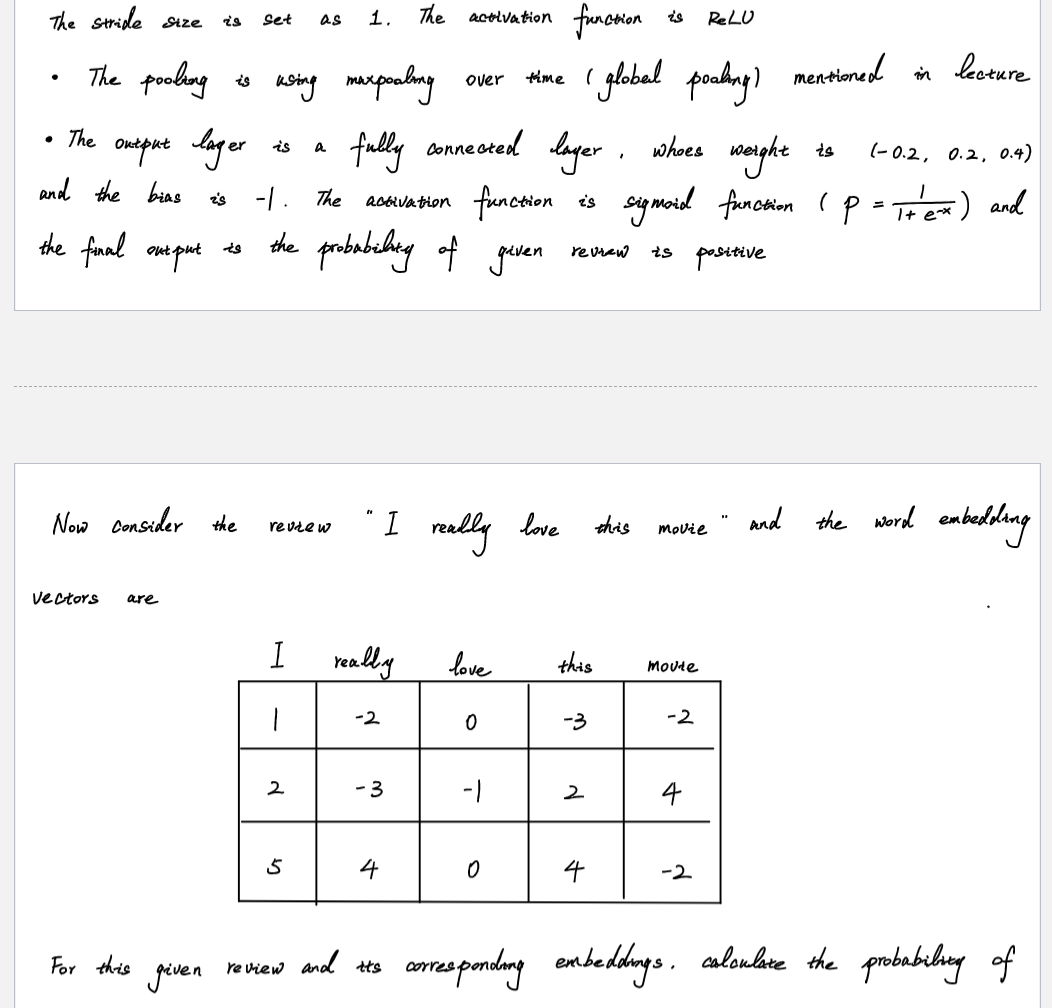 The stride size is set as 1. The activation function is ReLU
• The pooling is using maxpooling over time (global pooling) mentioned in lecture
• The output layer is a fully connected layer, whoes weight is (-0.2, 0.2, 0.4)
and the bias is -1. The activation function is sigmoid function ( P = 1/(1+e^-x) ) and
the final output is the probability of given review is positive
Now consider the review "I really love this movie" and the word embedding
vectors are
I really love this movie
1 -2 0 -3 -2
2 -3 -1 2 4
5 4 0 4 -2
For this given review and its corresponding embeddings. calculate the probability of